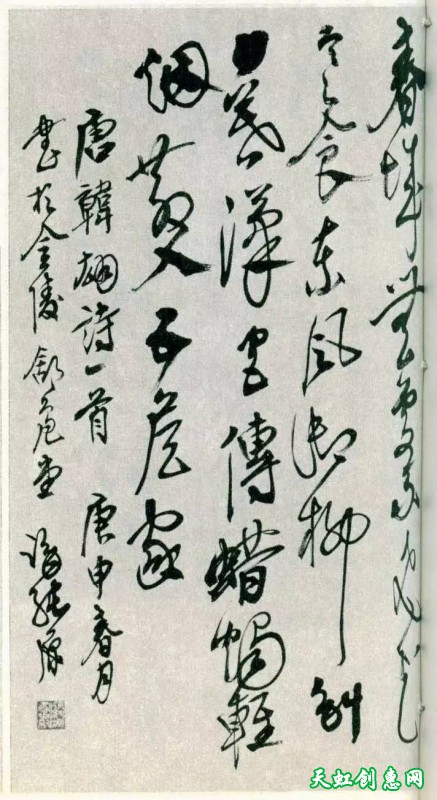 春城無處不飛花
寒食東風御柳斜
日暮漢宮傳蜡燭輕
烟散入五侯家
唐韓翃詩一首 庚申春月
書於金陵
天虹创惠网